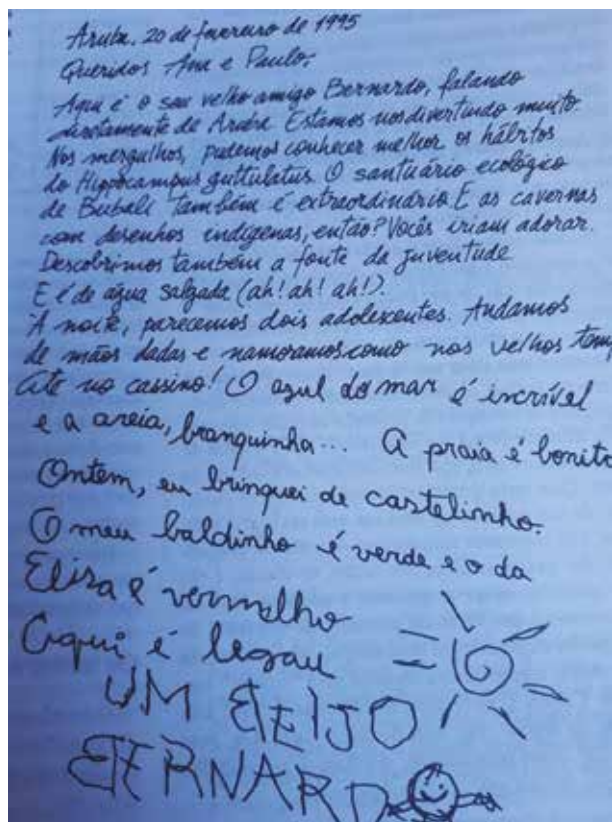 Aruba, 20 de fevereiro de 1995
Queridos Ana e Paulo,
Aqui é o seu velho amigo Bernardo, falando
diretamente de Aruba. Estamos nos divertindo muito.
Nos mergulhos, pudemos conhecer melhor os hábitos
do Hippocampus guttulatus. O santuário ecológico
de Bubali também é extraordinário. E as cavernas
com desenhos indígenas, então? Vocês iriam adorar.
Descobrimos também a fonte da juventude
E é de água salgada (ah! ah! ah!).
À noite, parecemos dois adolescentes. Andamos
de mãos dadas e namoramos como nos velhos temp
até no cassino! O azul do mar é incrível
e a areia, branquinha... A praia é bonita
Ontem, eu brinquei de castelinho.
O meu baldinho é verde e o da
Elisa é vermelho
Aqui é legau
UM BEIJO
BERNARDO